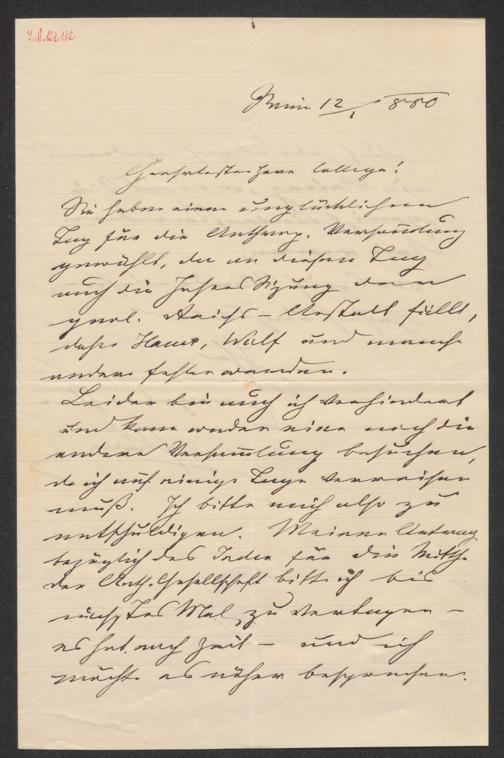 J.N. 122.182
Wien 12/1 880
Geehrtester Herr College!
Sie haben einen unglücklichen
Tag für die Anthrop. Versammlung
gewählt, da an diesem Tag
auch die Jahres Sitzung der
geol. Reichs-Anstalt fällt,
daher Hauer, Wolf und manch
andere fehlen werden.
Leider bin auch ich verhindert
und kann weder eine noch die
andere Versammlung besuchen,
da ich auf einige Tage verreisen
muß. Ich bitte mich also zu
entschuldigen. Meinen Antrag
bezüglich des Index für die Mitth.
der Anth. Gesellschaft bitte ich bis
nächstes Mal zu vertagen –
es hat noch Zeit – und ich
möchte es näher besprechen.